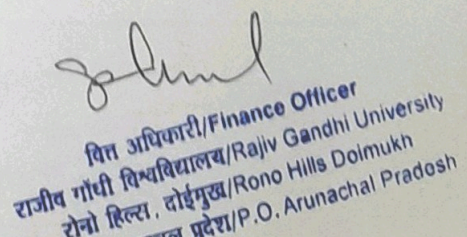 वित्त अधिकारी/Finance Officer
राजीव गाँधी विश्वविद्यालय/Rajiv Gandhi University
रोनो हिल्स, दोईमुख/Rono Hills Doimukh
प्रदेश/P.O. Arunachal Pradesh